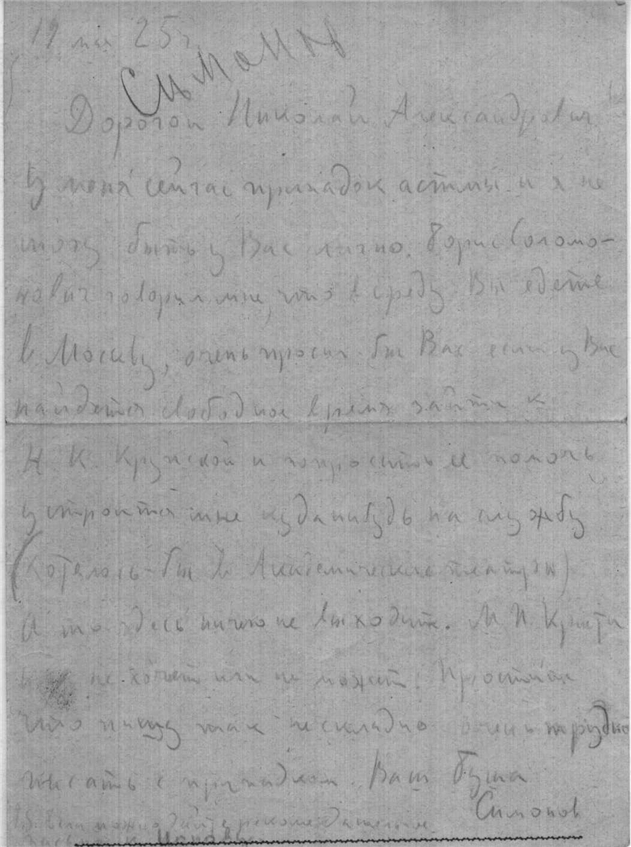 19 мая 25 г
Симонов
Дорогой Николай Александрович
У меня сейчас припадок астмы и я не
могу быть у Вас лично. Борис Соломо-
нович говорил мне, что в среду Вы едете
в Москву, очень просил бы Вас если у Вас
найдется свободное время зайти к
Н. К. Крупской и попросить ее помочь
устроится мне куда нибудь на службу
(хотелось-бы в Академические театры)
А то здесь ничего не выходит. М. П. Кристи
не хочет или не может. Простите
что пишу так нескладно очень трудно
писать с припадком. Ваш
Симонов